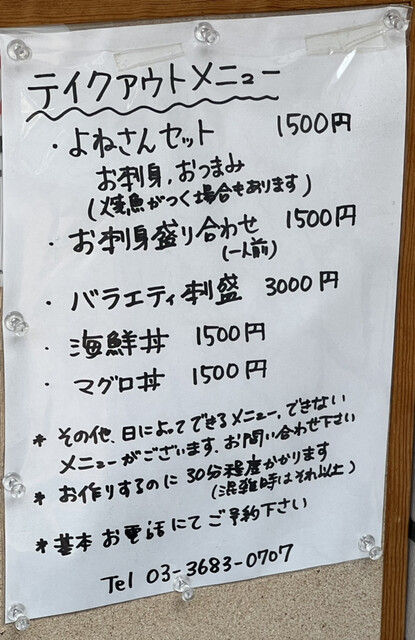 テイクアウトメニュー
・よねさんセット 1500円
お刺身,おつまみ
(焼魚がつく場合もあります)
・お刺身盛り合わせ 1500円
(一人前)
・バラエティ刺盛 3000円
・海鮮丼 1500円
・マグロ丼 1500円
* その他、日によってできるメニュー、できない
メニューがございます、お問い合わせ下さい
* お作りするのに30分程度かかります
(混雑時はそれ以上)
* 基本お電話にてご予約下さい
Tel 03-3683-0707